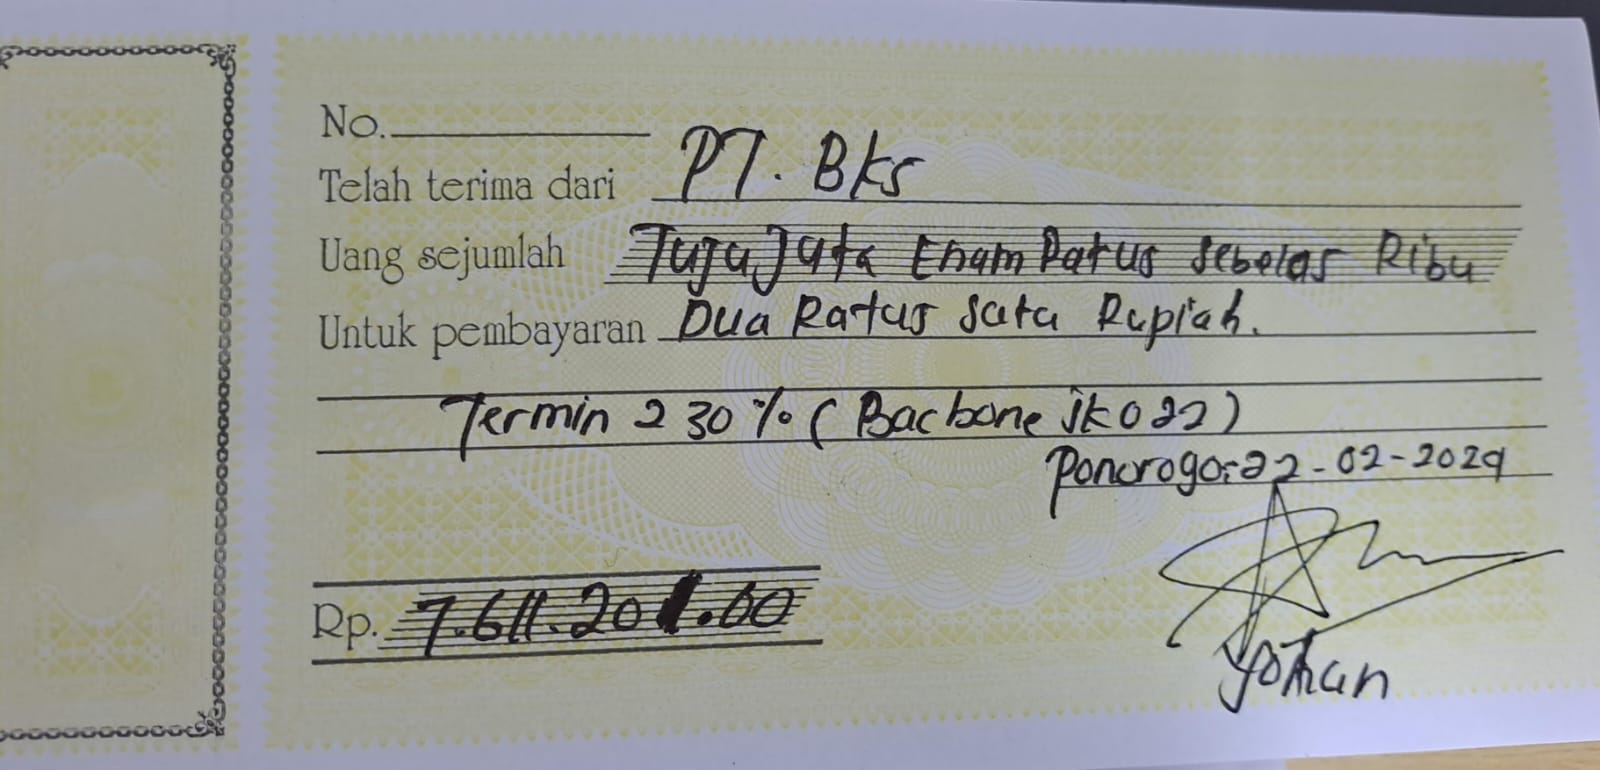 No.
Telah terima dari PT. BKS
Uang sejumlah Tuju Juta Enam Ratus Sebelas Ribu
Untuk pembayaran Dua Ratus Satu Rupiah.
Termin 2 30% (Bacbone JK022)
Ponorogo: 22-02-2024
Rp. 7.611.201.00
Yohan